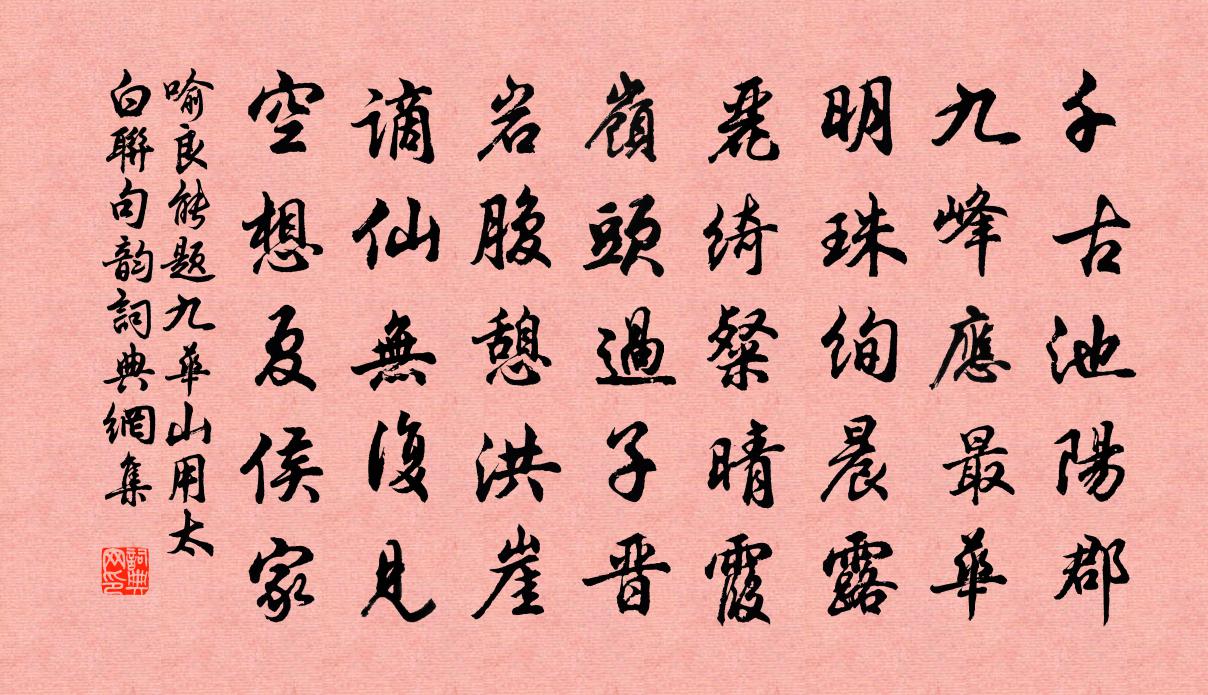 千古池陽郡
九峰應最華
明珠絢晨露
麗綺粲晴霞
嶺頭過子晋
岩腹憩洪崖
謫仙無復見
空想夏侯家
喻良能題九華山用太
白聯句韵詞典網集
詞典网印